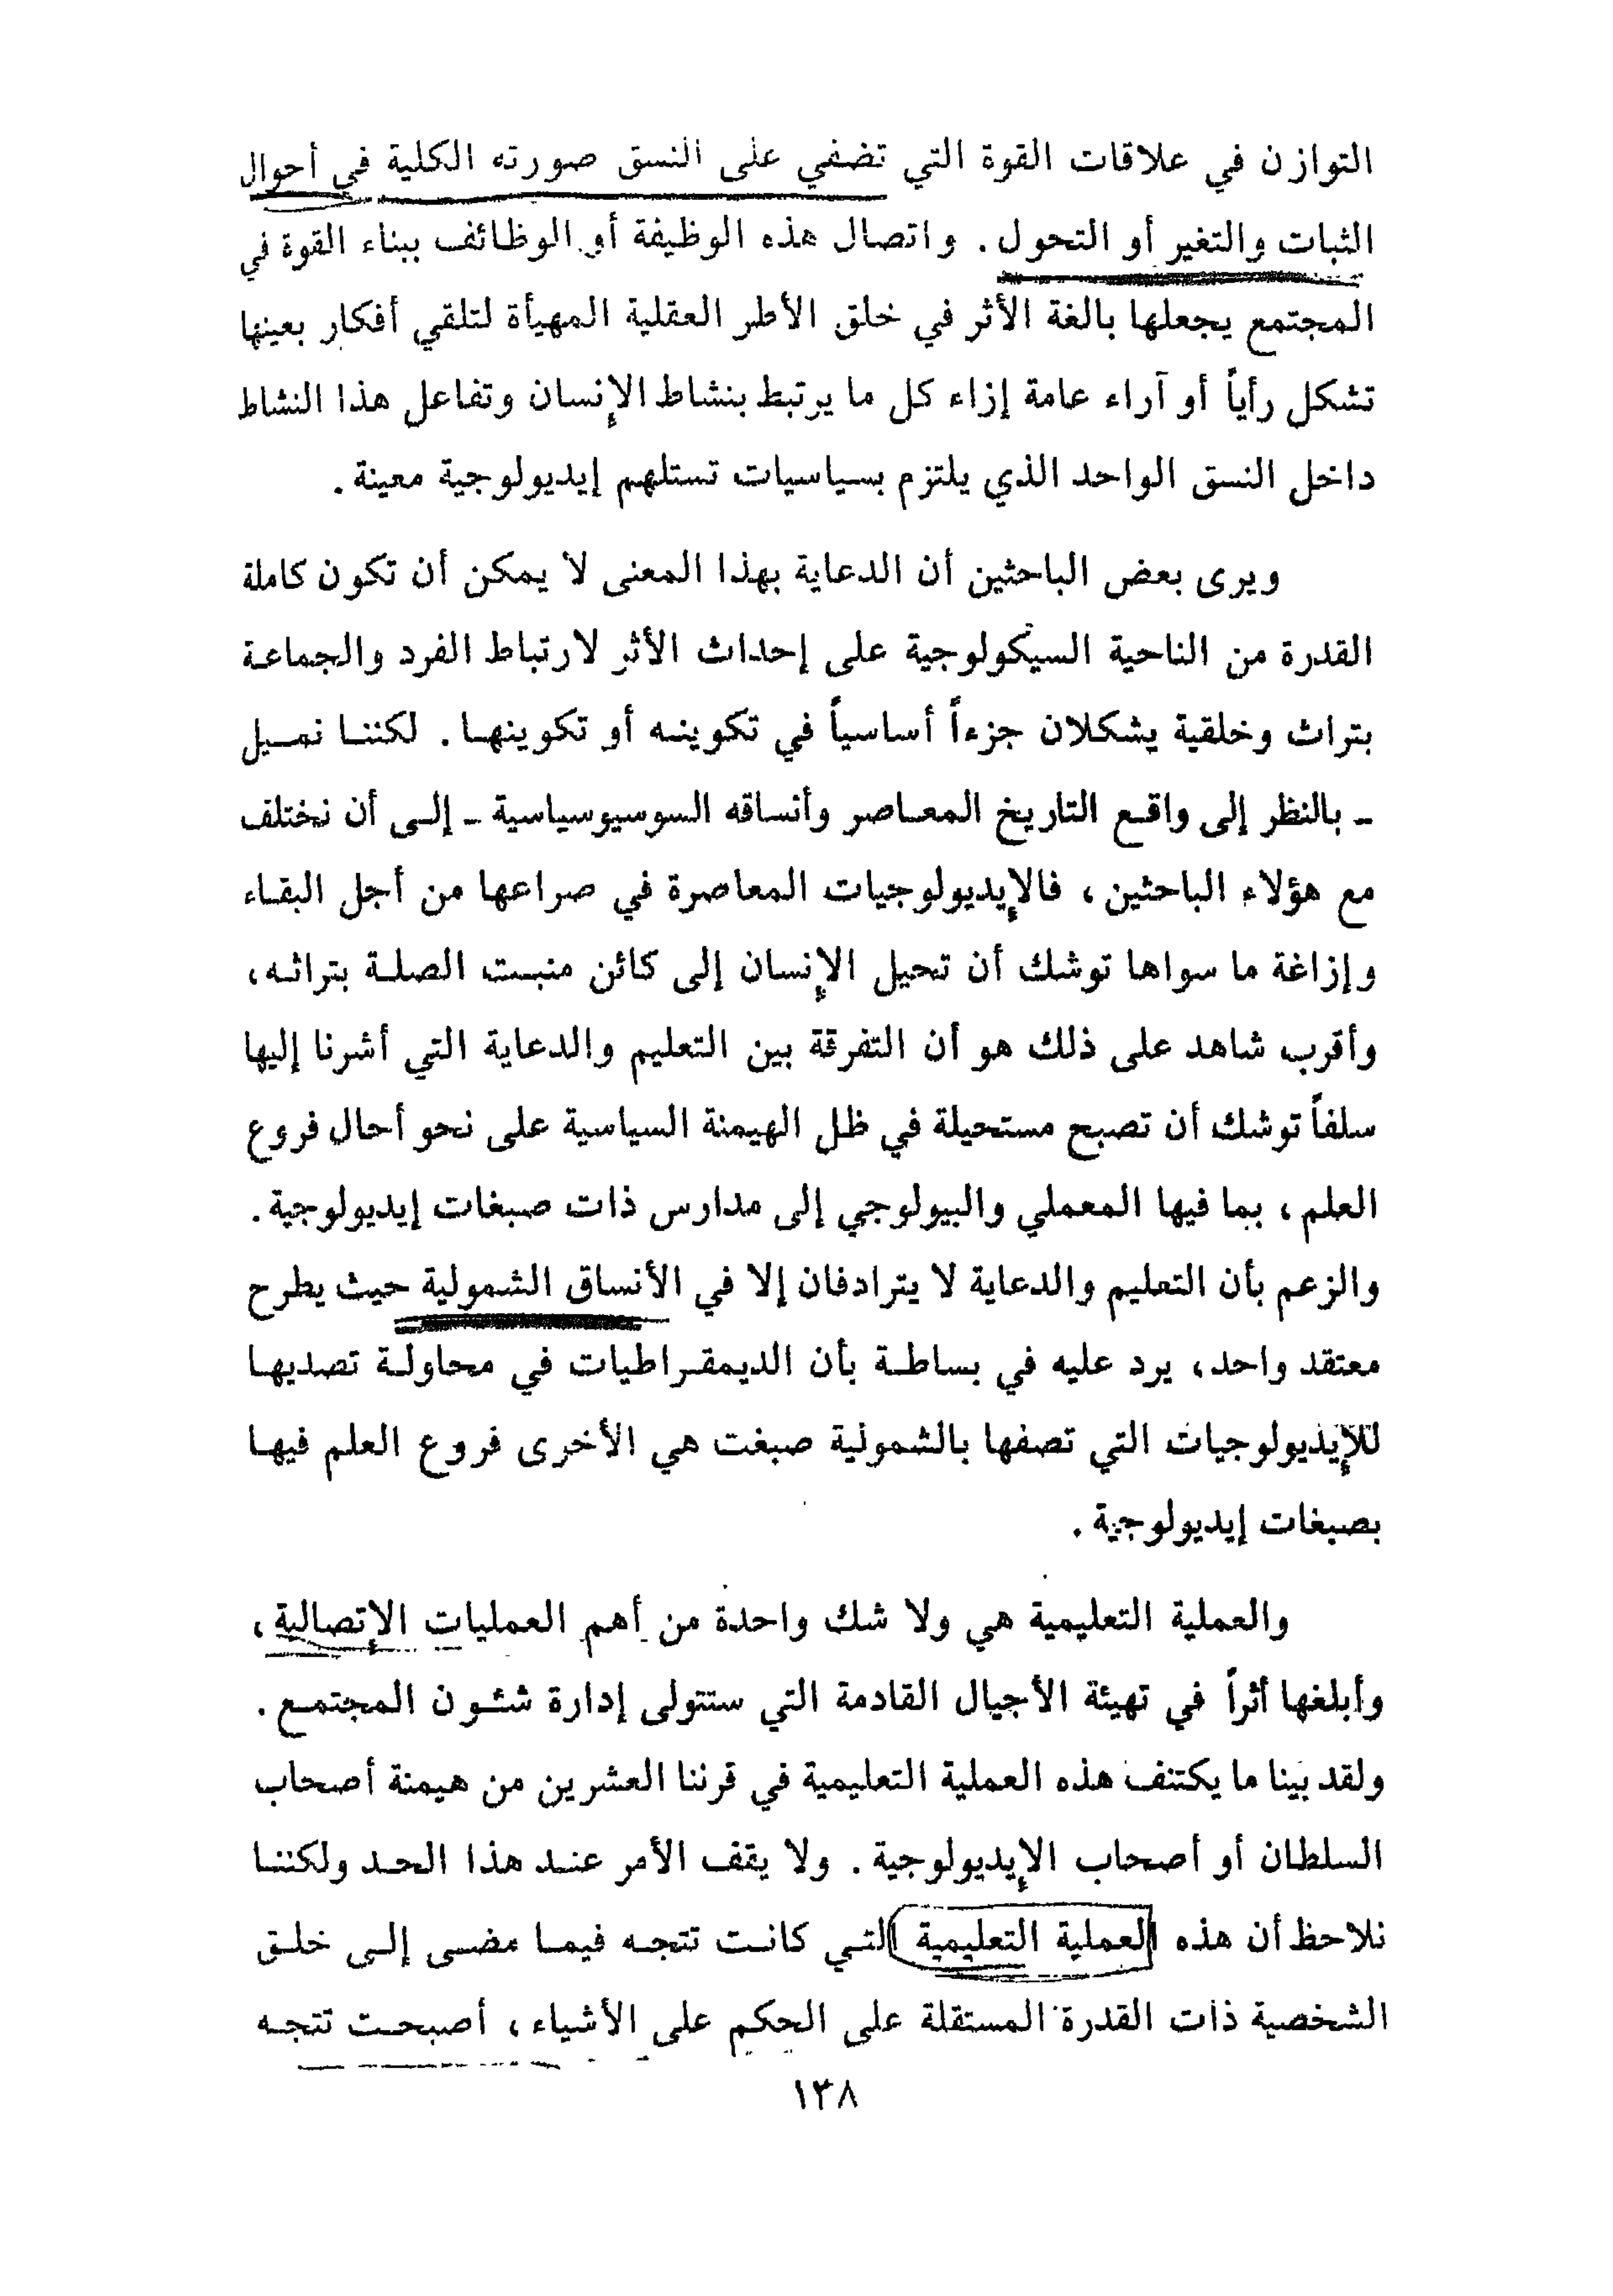 التوازن في علاقات القوة التي تضفي على النسق صورته الكلية في أحوال
الثبات والتغير أو التحول . واتصال هذه الوظيفة أو الوظائف ببناء القوة في
المجتمع يجعلها بالغة الأثر في خلق الأطر العقلية المهيأة لتلقي أفكار بعينها
تشكل رأياً أو آراء عامة إزاء كل ما يرتبط بنشاط الإنسان وتفاعل هذا النشاط
داخل النسق الواحد الذي يلتزم بسياسيات تستلهم إيديولوجية معينة .
ويرى بعض الباحثين أن الدعاية بهذا المعنى لا يمكن أن تكون كاملة
القدرة من الناحية السيكولوجية على إحداث الأثر لارتباط الفرد والجماعة
بتراث وخلقية يشكلان جزءاً أساسياً في تكوينه أو تكوينها . لكننا نميل
ـ بالنظر إلى واقع التاريخ المعاصر وأنساقه السوسيوسياسية ـ إلى أن نختلف
مع هؤلاء الباحثين ، فالإيديولوجيات المعاصرة في صراعها من أجل البقاء
وإزاغة ما سواها توشك أن تحيل الإنسان إلى كائن منبت الصلة بتراثه ،
وأقرب شاهد على ذلك هو أن التفرقة بين التعليم والدعاية التي أشرنا إليها
سلفاً توشك أن تصبح مستحيلة في ظل الهيمنة السياسية على نحو أحال فروع
العلم ، بما فيها المعملي والبيولوجي إلى مدارس ذات صبغات إيديولوجية .
والزعم بأن التعليم والدعاية لا يترادفان إلا في الأنساق الشمولية حيث يطرح
معتقد واحد ، يرد عليه في بساطة بأن الديمقراطيات في محاولة تصديها
للإيذيولوجيات التي تصفها بالشمولية صبغت هي الأخرى فروع العلم فيها
بصبغات إيديولوجية .
والعملية التعليمية هي ولا شك واحدة من أهم العمليات الإتصالية ،
وأبلغها أثراً في تهيئة الأجيال القادمة التي ستتولى إدارة شئون المجتمع .
ولقد بينا ما يكتنف هذه العملية التعليمية في قرننا العشرين من هيمنة أصحاب
السلطان أو أصحاب الإيديولوجية . ولا يقف الأمر عند هذا الحد ولكننا
نلاحظ أن هذه العملية التعليمية التي كانت تتجه فيما مضى إلى خلق
الشخصية ذات القدرة المستقلة على الحكم على الأشياء ، أصبحت تتجه
١٣٨